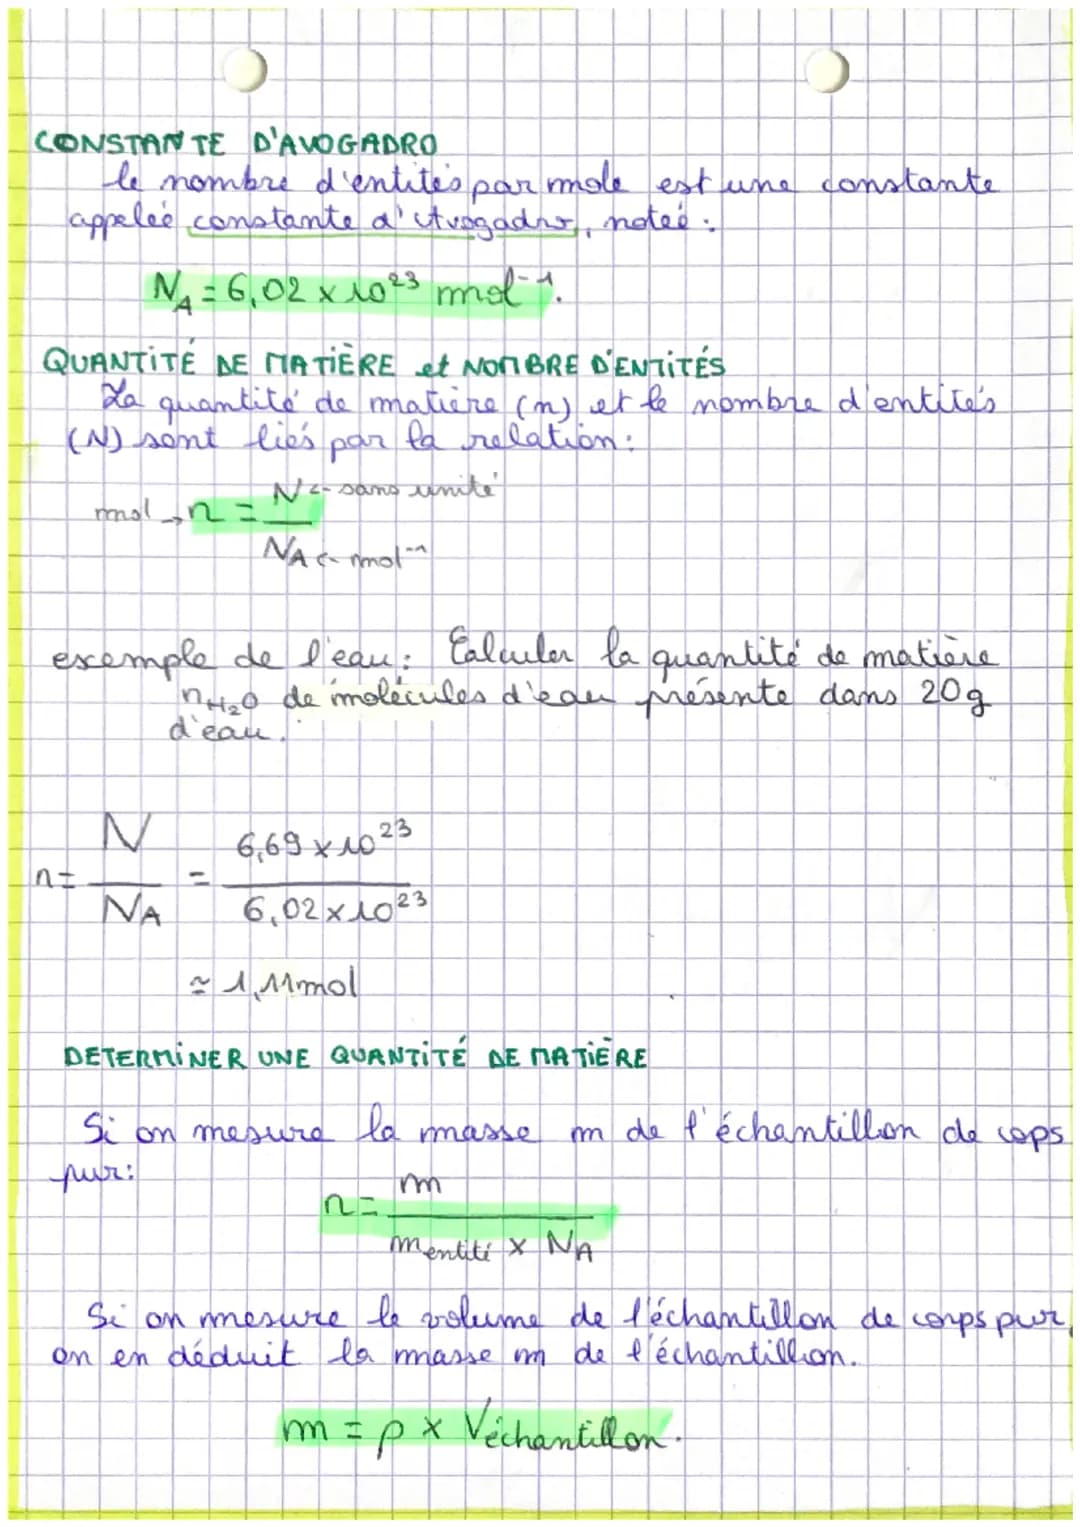 CONSTANTE D'AVOGADRO
le nombre d'entités par mole est une constante
appelée constante d'Avogadro, notée :
N_A = 6,02 x 10²³ mol⁻¹.
QUANTITÉ DE MATIÈRE et NOMBRE D'ENTITÉS
La quantité de matière (n) et le nombre d'entités
(N) sont liés par la relation :
mol → n = N ← sans unité
N_A ← mol⁻¹
exemple de l'eau : Calculer la quantité de matière
n_H₂O de molécules d'eau présente dans 20g
d'eau.
n = N / N_A = 6,69 x 10²³ / 6,02 x 10²³
≃ 1,11mol
DETERMINER UNE QUANTITÉ DE MATIÈRE
Si on mesure la masse m de l'échantillon de cops
pur :
n = m / m_entité x N_A
Si on mesure le volume de l'échantillon de corps pur,
on en déduit la masse m de l'échantillion.
m = ρ x Véchantillon.